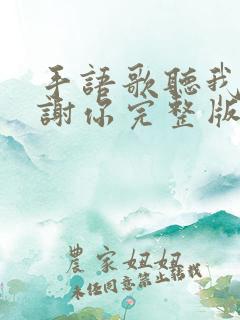 手語歌聽我
謝你完整版
農家妞妞
未经同意禁止转载